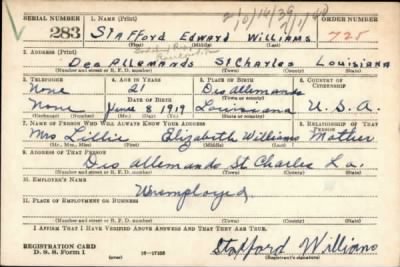 SERIAL NUMBER 1. NAME (Print) ORDER NUMBER
283 Stafford Edward Williams 725
(First) (Middle) (Last)
2. ADDRESS (Print)
Des Allemands St Charles Louisiana
(Number and street or R. F. D. number) (Town) (County) (State)
3. TELEPHONE 4. AGE IN YEARS 5. PLACE OF BIRTH 6. COUNTRY OF CITIZENSHIP
None 21 Des allemands
DATE OF BIRTH (Town or county)
None June 8 1919 Louisiana U.S.A.
(Exchange) (Number) (Mo.) (Day) (Yr.) (State or country)
7. NAME OF PERSON WHO WILL ALWAYS KNOW YOUR ADDRESS 8. RELATIONSHIP OF THAT PERSON
Mrs Lillie Elizabeth Williams Mother
(Mr., Mrs., Miss) (First) (Middle) (Last)
9. ADDRESS OF THAT PERSON
Des allemands St. Charles La.
(Number and street or R. F. D. number) (Town) (County) (State)
10. EMPLOYER'S NAME
Unemployed
11. PLACE OF EMPLOYMENT OR BUSINESS
(Number and street or R. F. D. number) (Town) (County) (State)
I AFFIRM THAT I HAVE VERIFIED ABOVE ANSWERS AND THAT THEY ARE TRUE.
REGISTRATION CARD Stafford Williams
D. S. S. Form 1 (over) (Registrant's signature)